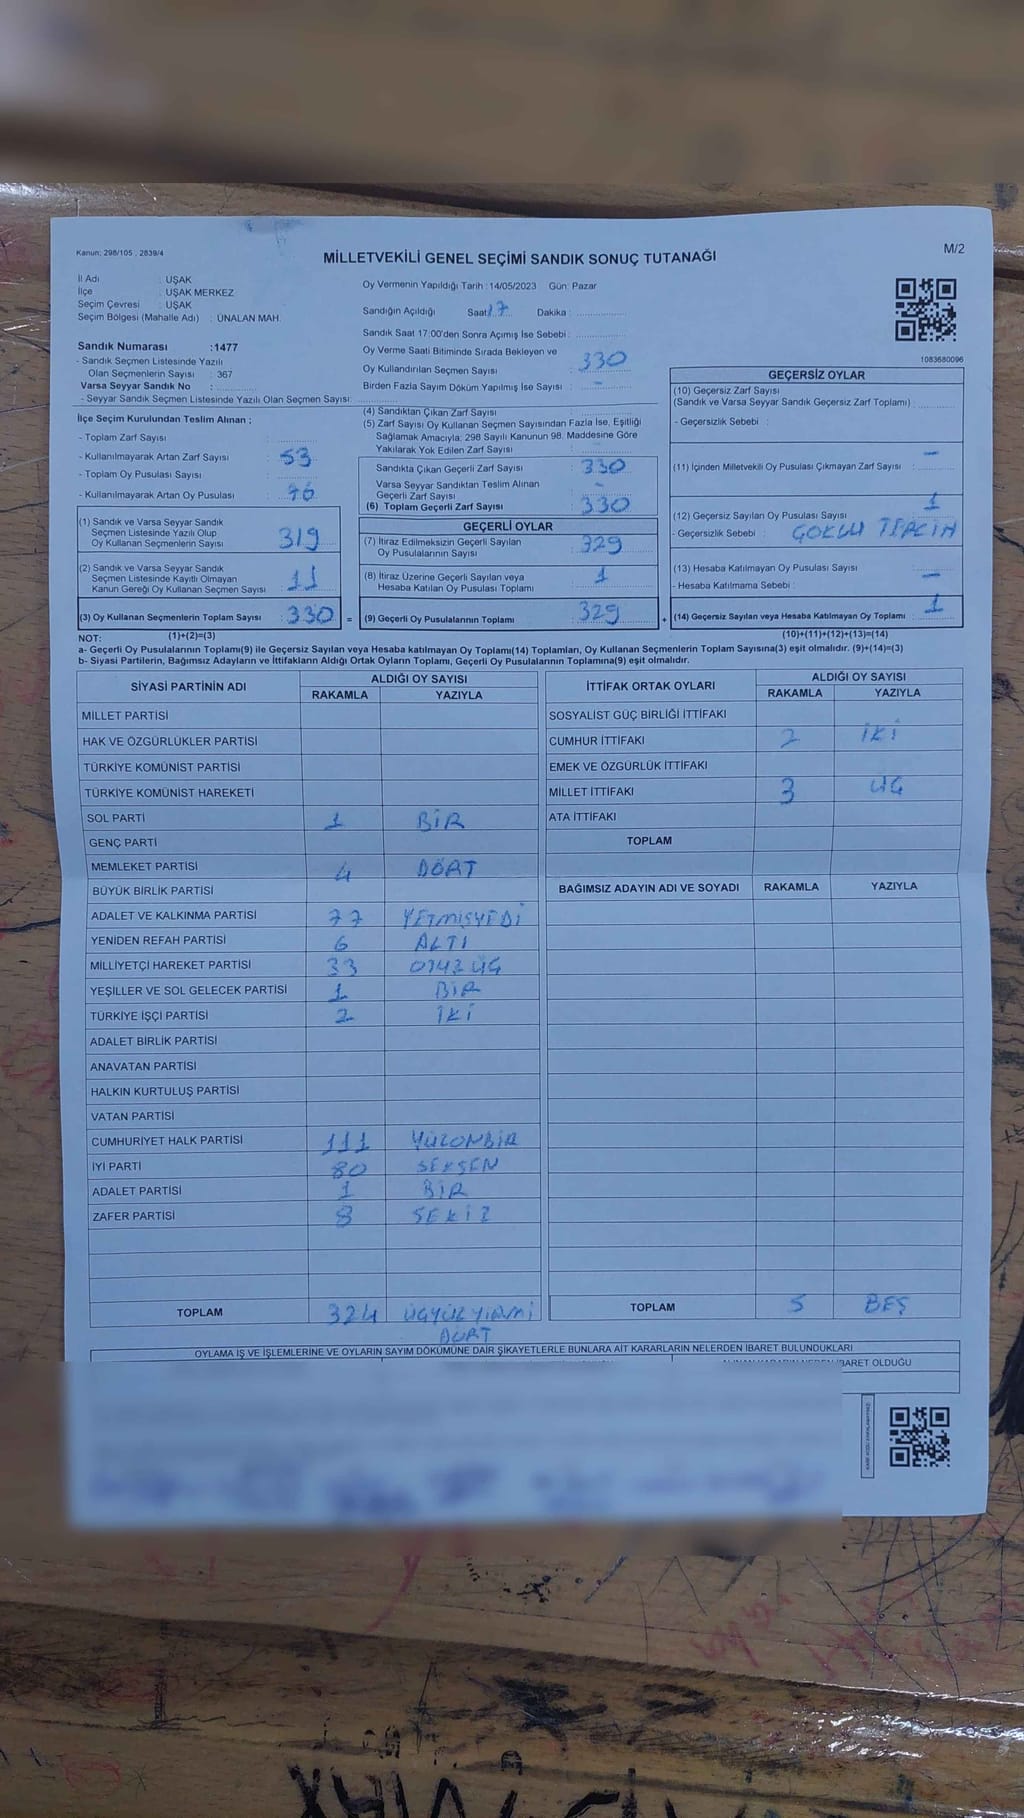 Kanun; 298/105 , 2839/4
MİLLETVEKİLİ GENEL SEÇİMİ SANDIK SONUÇ TUTANAĞI
M/2
İl Adı : UŞAK
İlçe : UŞAK MERKEZ
Seçim Çevresi : UŞAK
Seçim Bölgesi (Mahalle Adı) : ÜNALAN MAH.
Sandık Numarası :1477
- Sandık Seçmen Listesinde Yazılı
Olan Seçmenlerin Sayısı : 367
Varsa Seyyar Sandık No :
- Seyyar Sandık Seçmen Listesinde Yazılı Olan Seçmen Sayısı:
Oy Vermenin Yapıldığı Tarih : 14/05/2023 Gün: Pazar
Sandığın Açıldığı Saat: 17 Dakika :
Sandık Saat 17:00'den Sonra Açımış İse Sebebi :
Oy Verme Saati Bitiminde Sırada Bekleyen ve
Oy Kullandırılan Seçmen Sayısı : 330
Birden Fazla Sayım Döküm Yapılmış İse Sayısı : -
1083680096
İlçe Seçim Kurulundan Teslim Alınan ;
- Toplam Zarf Sayısı :
- Kullanılmayarak Artan Zarf Sayısı : 53
- Toplam Oy Pusulası Sayısı :
- Kullanılmayarak Artan Oy Pusulası : 76
(1) Sandık ve Varsa Seyyar Sandık
Seçmen Listesinde Yazılı Olup
Oy Kullanan Seçmenlerin Sayısı : 319
(2) Sandık ve Varsa Seyyar Sandık
Seçmen Listesinde Kayıtlı Olmayan
Kanun Gereği Oy Kullanan Seçmen Sayısı : 11
(3) Oy Kullanan Seçmenlerin Toplam Sayısı : 330 =
(4) Sandıktan Çıkan Zarf Sayısı :
(5) Zarf Sayısı Oy Kullanan Seçmen Sayısından Fazla İse, Eşitliği
Sağlamak Amacıyla; 298 Sayılı Kanunun 98. Maddesine Göre
Yakılarak Yok Edilen Zarf Sayısı :
Sandıkta Çıkan Geçerli Zarf Sayısı : 330
Varsa Seyyar Sandıktan Teslim Alınan
Geçerli Zarf Sayısı : -
(6) Toplam Geçerli Zarf Sayısı : 330
GEÇERLİ OYLAR
(7) İtiraz Edilmeksizin Geçerli Sayılan
Oy Pusulalarının Sayısı : 329
(8) İtiraz Üzerine Geçerli Sayılan veya
Hesaba Katılan Oy Pusulası Toplamı : 1
(9) Geçerli Oy Pusulalarının Toplamı : 329 +
GEÇERSİZ OYLAR
(10) Geçersiz Zarf Sayısı
(Sandık ve Varsa Seyyar Sandık Geçersiz Zarf Toplamı) :
- Geçersizlik Sebebi :
(11) İçinden Milletvekili Oy Pusulası Çıkmayan Zarf Sayısı : -
(12) Geçersiz Sayılan Oy Pusulası Sayısı : 1
- Geçersizlik Sebebi : ÇOKLU TERCİH
(13) Hesaba Katılmayan Oy Pusulası Sayısı : -
- Hesaba Katılmama Sebebi :
(14) Geçersiz Sayılan veya Hesaba Katılmayan Oy Toplamı : 1
NOT: (1)+(2)=(3) (10)+(11)+(12)+(13)=(14)
a- Geçerli Oy Pusulalarının Toplamı(9) ile Geçersiz Sayılan veya Hesaba katılmayan Oy Toplamı(14) Toplamları, Oy Kullanan Seçmenlerin Toplam Sayısına(3) eşit olmalıdır. (9)+(14)=(3)
b- Siyasi Partilerin, Bağımsız Adayların ve İttifakların Aldığı Ortak Oyların Toplamı, Geçerli Oy Pusulalarının Toplamına(9) eşit olmalıdır.
SİYASİ PARTİNİN ADI ALDIĞI OY SAYISI
RAKAMLA YAZIYLA
MİLLET PARTİSİ
HAK VE ÖZGÜRLÜKLER PARTİSİ
TÜRKİYE KOMÜNİST PARTİSİ
TÜRKİYE KOMÜNİST HAREKETİ
SOL PARTİ 1 BİR
GENÇ PARTİ
MEMLEKET PARTİSİ 4 DÖRT
BÜYÜK BİRLİK PARTİSİ
ADALET VE KALKINMA PARTİSİ 77 YETMİŞYEDİ
YENİDEN REFAH PARTİSİ 6 ALTI
MİLLİYETÇİ HAREKET PARTİSİ 33 OTUZ ÜÇ
YEŞİLLER VE SOL GELECEK PARTİSİ 1 BİR
TÜRKİYE İŞÇİ PARTİSİ 2 İKİ
ADALET BİRLİK PARTİSİ
ANAVATAN PARTİSİ
HALKIN KURTULUŞ PARTİSİ
VATAN PARTİSİ
CUMHURİYET HALK PARTİSİ 111 YÜZONBİR
İYİ PARTİ 80 SEKSEN
ADALET PARTİSİ 1 BİR
ZAFER PARTİSİ 8 SEKİZ
TOPLAM 324 ÜÇYÜZ YİRMİ
DÖRT
İTTİFAK ORTAK OYLARI ALDIĞI OY SAYISI
RAKAMLA YAZIYLA
SOSYALİST GÜÇ BİRLİĞİ İTTİFAKI
CUMHUR İTTİFAKI 2 İKİ
EMEK VE ÖZGÜRLÜK İTTİFAKI
MİLLET İTTİFAKI 3 ÜÇ
ATA İTTİFAKI
TOPLAM
BAĞIMSIZ ADAYIN ADI VE SOYADI RAKAMLA YAZIYLA
TOPLAM 5 BEŞ
OYLAMA İŞ VE İŞLEMLERİNE VE OYLARIN SAYIM DÖKÜMÜNE DAİR ŞİKAYETLERLE BUNLARA AİT KARARLARIN NELERDEN İBARET BULUNDUKLARI
İBARET OLDUĞU